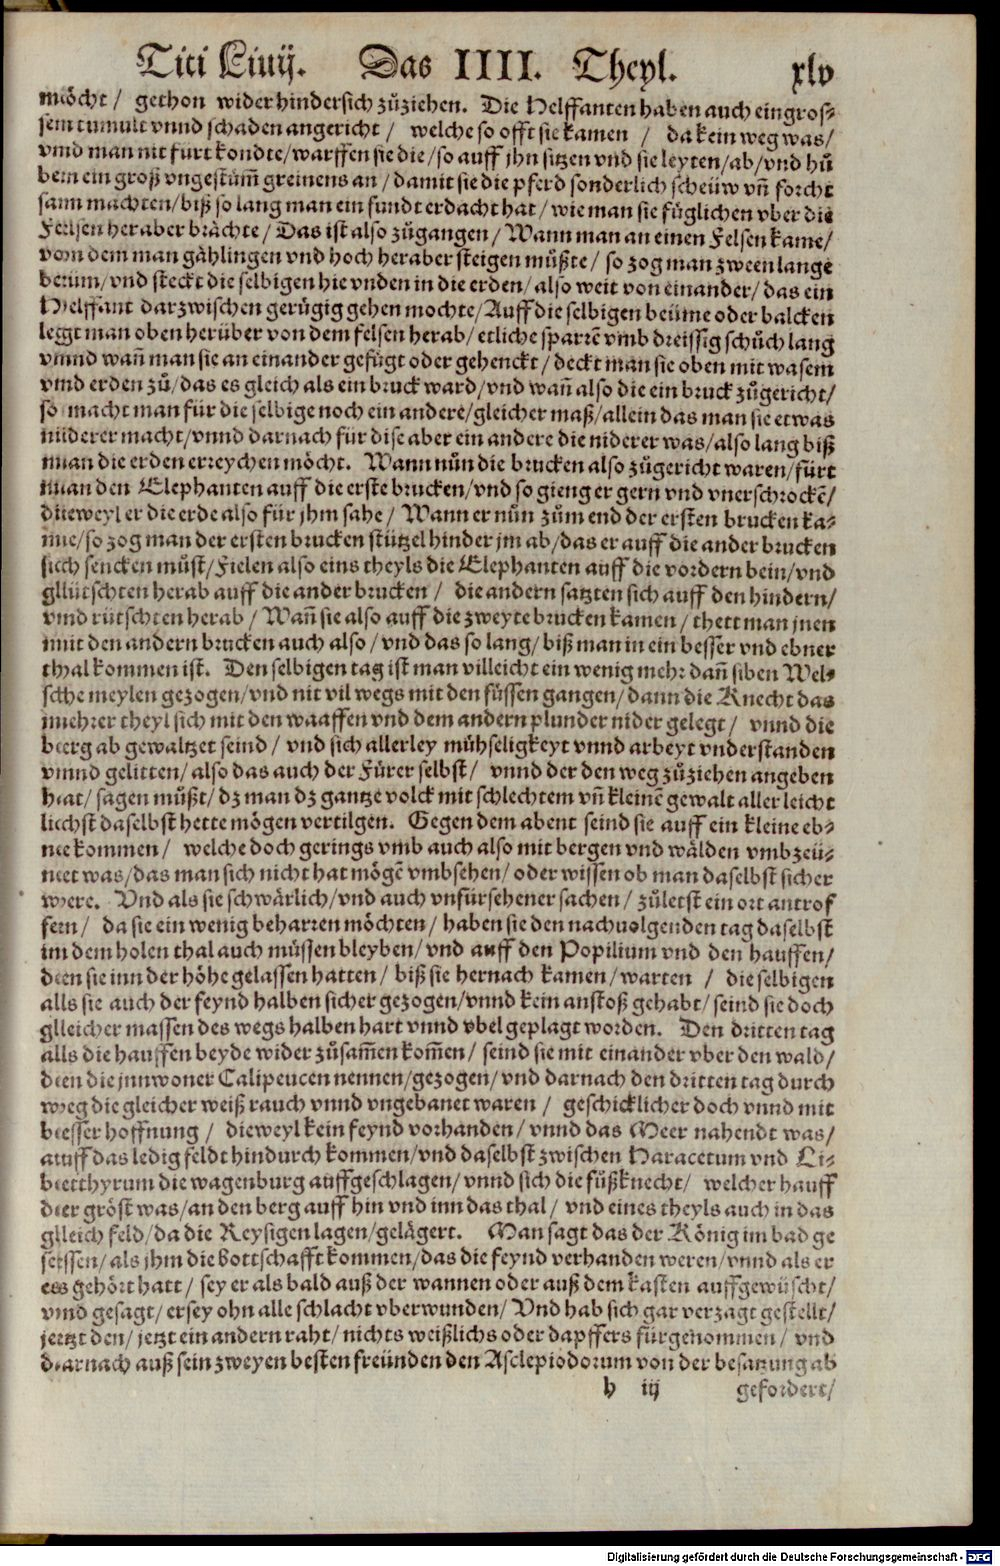 Titi Liuij. Das IIII. Theyl. xlv
möcht/ gethon wider hindersich zůziehen. Die Helffanten haben auch ein gros-
sem tumult vnnd schaden angericht/ welche so offt sie kamen / da kein weg was/
vnnd man nit fürt kondte/warffen sie die/so auff jhn sitzen vnd sie leyten/ab/vnd hů
ben ein groß vngestüm̃ greinens an/damit sie die pferd sonderlich scheüw vñ forcht
sam machten/biß so lang man ein fundt erdacht hat/wie man sie füglichen vber die
Felsen her aber brächte/Das ist also zůgangen/Wann man an einen Felsen kame/
vom dem man gählingen vnd hoch heraber steigen müßte/ so zog man zween lange
beum/vnd steckt die selbigen hie vnden in die erden/also weit von einander/das ein
Helffant darzwischen gerügig gehen mochte/Auff die selbigen beüme oder balcken
legt man oben herüber von dem felsen herab/etliche sparrẽ vmb dreissig schůch lang
vnnd wañ man sie an einander gefügt oder gehenckt/deckt man sie oben mit wasem
vnd erden zů/das es gleich als ein bruck ward/vnd wañ also die ein bruck zůgericht/
so macht man für die selbige noch ein andere/gleicher maß/allein das man sie etwas
niderer macht/vnnd darnach für dise aber ein andere die niderer was/also lang biß
man die erden erreychen möcht. Wann nůn die brucken also zůgericht waren/fürt
man den Elephanten auff die erste brucken/vnd so gieng er gern vnd vnerschrockẽ/
dieweyl er die erde also für jhm sahe/ Wann er nůn zům end der ersten brucken ka-
me/so zog man der ersten brucken stützel hinder jm ab/das er auff die ander brucken
sich sencken můst/Fielen also eins theyls die Elephanten auff die vordern bein/vnd
glütschten herab auff die ander brucken/ die andern satzten sich auff den hindern/
vnd rütschten herab/Wañ sie also auff die zweyte brucken kamen/thett man jnen
mit den andern brucken auch also/vnd das so lang/biß man in ein besser vnd ebner
thal kommen ist. Den selbigen tag ist man villeicht ein wenig mehr dañ siben Wel-
sche meylen gezogen/vnd nit vil wegs mit den füssen gangen/dann die Knecht das
mehrer theyl sich mit den waaffen vnd dem andern plunder nider gelegt/ vnnd die
berg ab gewaltzet seind/ vnd sich allerley mühseligkeyt vnnd arbeyt vnderstanden
vnnd gelitten/also das auch der Fürer selbst/ vnnd der den weg zůziehen angeben
hat/ sagen můßt/dz man dz gantze volck mit schlechtem vñ kleinẽ gewalt aller leicht
lichst daselbst hette mögen vertilgen. Gegen dem abent seind sie auff ein kleine eb-
ne kommen/ welche doch gerings vmb auch also mit bergen vnd wälden vmbzeü-
net was/das man sich nicht hat mögẽ vmbsehen/oder wissen ob man daselbst sicher
were. Vnd als sie schwärlich/vnd auch vnfürsehener sachen/ zůletst ein ort antrof
fen/ da sie ein wenig beharren möchten/haben sie den nachuolgenden tag daselbst
im dem holen thal auch müssen bleyben/vnd auff den Popilium vnd den hauffen/
den sie inn der höhe gelassen hatten/ biß sie hernach kamen/warten / die selbigen
alls sie auch der feynd halben sicher gezogen/vnnd kein anstoß gehabt/seind sie doch
gleicher massen des wegs halben hart vnnd vbel geplagt worden. Den dritten tag
als die hauffen beyde wider zůsam̃en kom̃en/ seind sie mit einander vber den wald/
den die jnnwoner Calipeucen nennen/gezogen/vnd darnach den dritten tag durch
weg die gleicher weiß rauch vnnd vngebanet waren / geschicklicher doch vnnd mit
besser hoffnung/ dieweyl kein feynd vorhanden/vnnd das Meer nahendt was/
auff das ledig feldt hindurch kommen/vnd daselbst zwischen Haracetum vnd Li-
betthyrum die wagenburg auffgeschlagen/vnnd sich die fůßknecht/ welcher hauff
der gröst was/an den berg auff hin vnd inn das thal/ vnd eines theyls auch in das
gleich feld/da die Reysigen lagen/gelägert. Man sagt das der König im bad ge
setssen/als jhm die bottschafft kommen/das die feynd verhanden weren/vnnd als er
es gehört hatt/ sey er als bald auß der wannen oder auß dem kasten auffgewüscht/
vnd gesagt/er sey ohn alle schlacht vberwunden/Vnd hab sich gar verzagt gestellt/
jetzt den/jetzt ein andern raht/nichts weißlichs oder dapffers fürgenommen/ vnd
darnach auß sein zweyen besten freünden den Asclepiodorum von der besatzung ab
h iij gefordert/
Digitalisierung gefördert durch die Deutsche Forschungsgemeinschaft - DFG